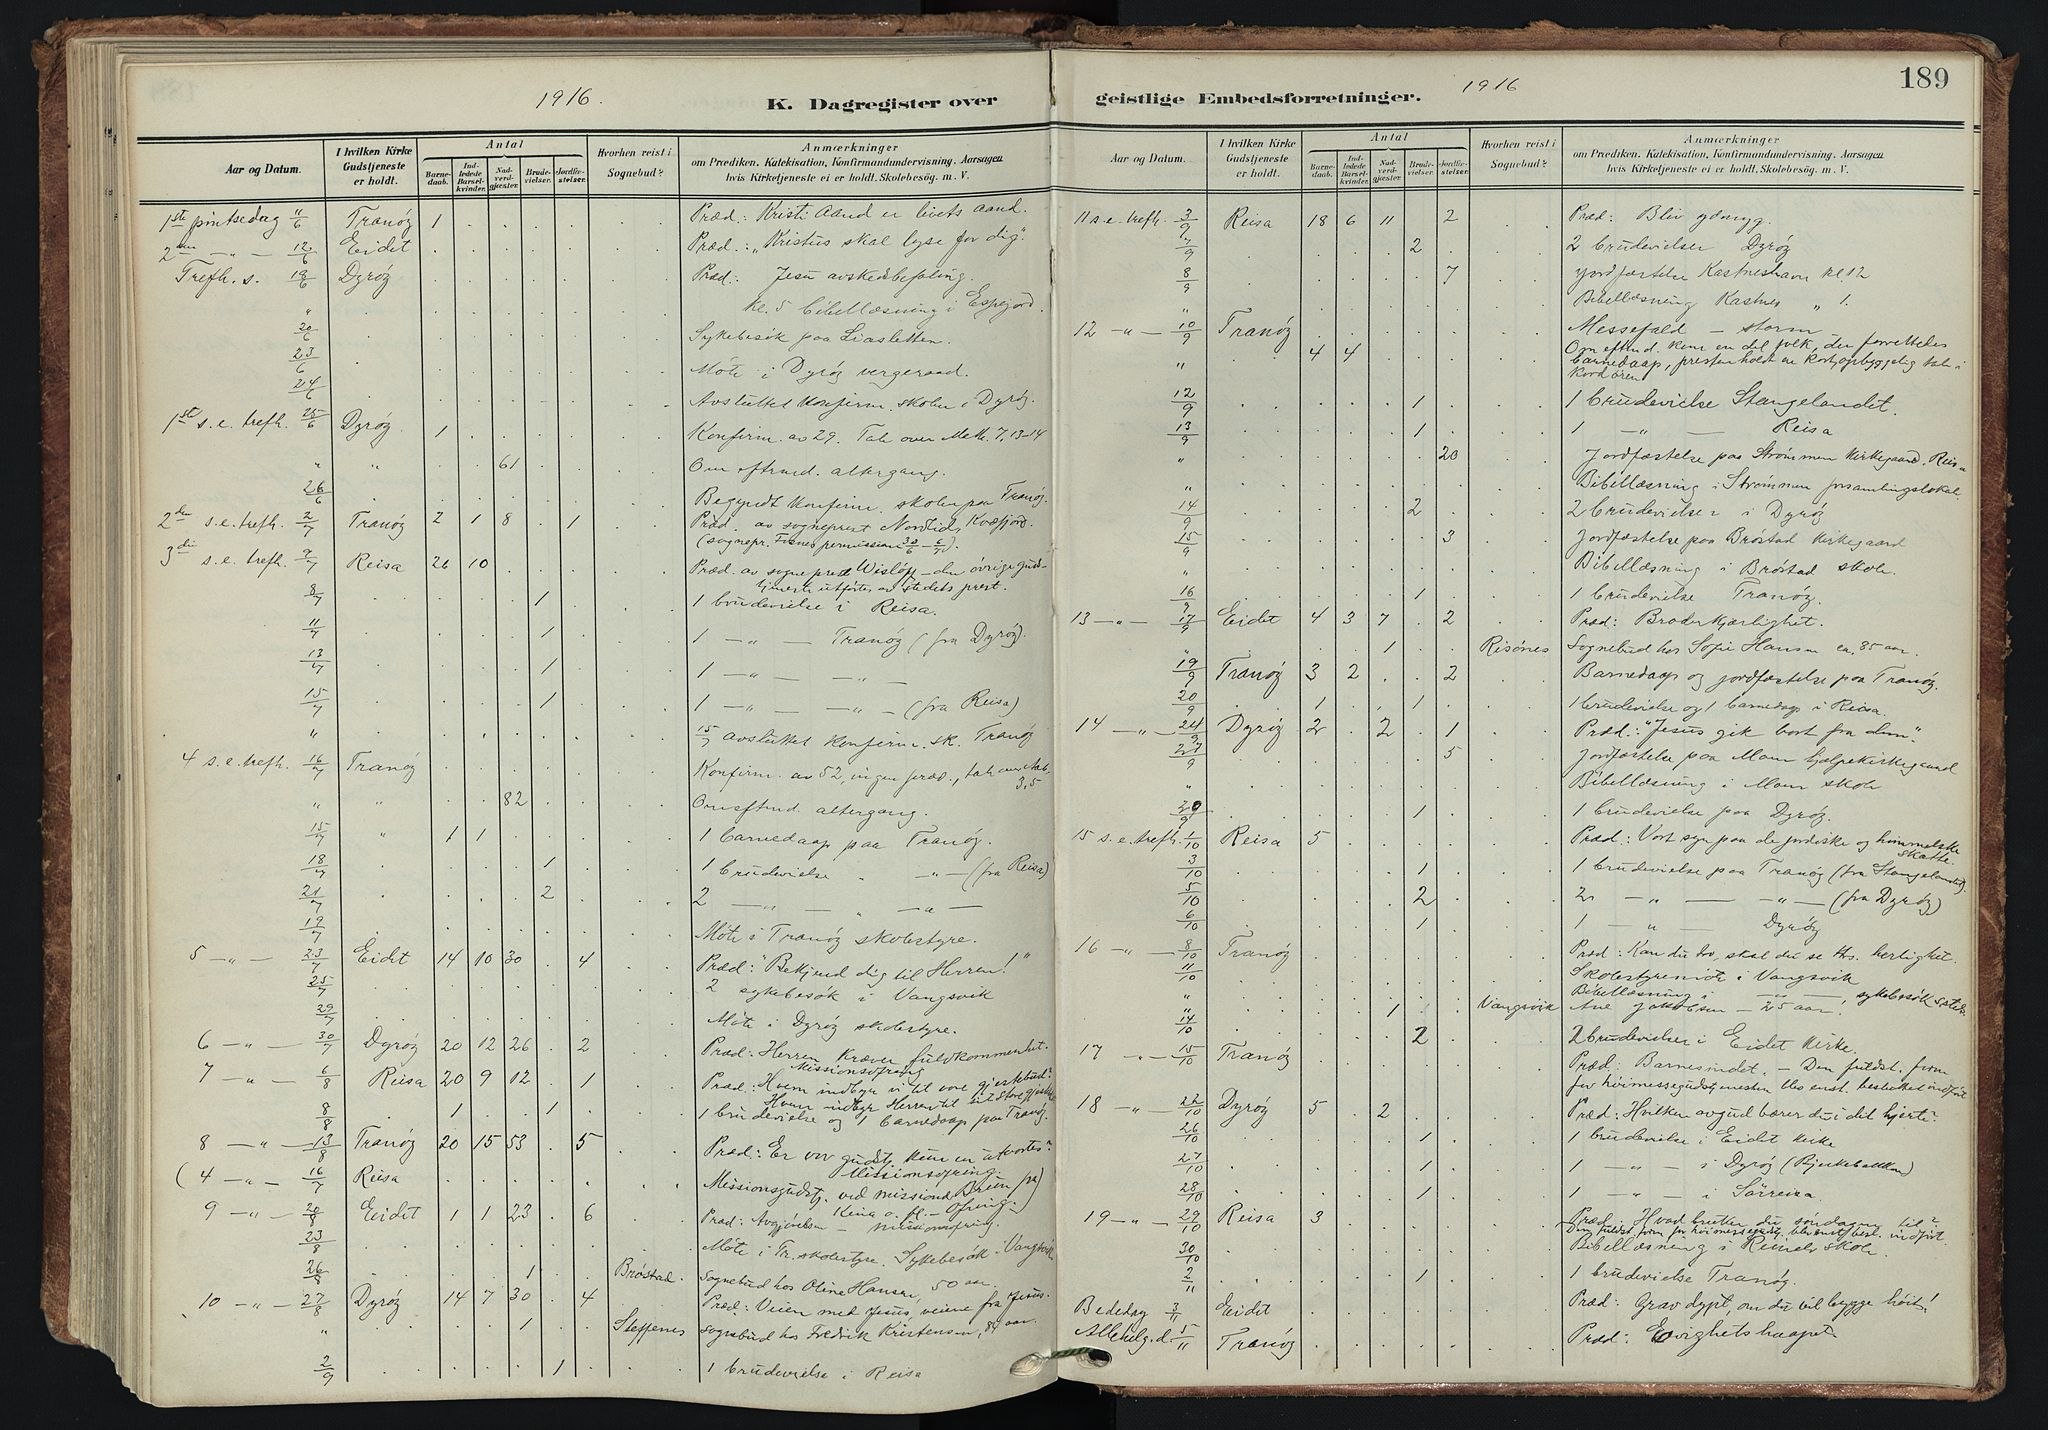 1916.
K. Dagregister over
Aar og Datum.
I hvilken Kirke Gudstjeneste er holdt.
Antal
Barnedaab.
Indledede Barselkvinder.
Nadverdgjæster.
Brudevielser.
Jordfæstelser.
Hvorhen reist i Sognebud?
Anmærkninger
om Prædiken. Katekisation, Konfirmandundervisning. Aarsagen
hvis Kirketjeneste ei er holdt. Skolebesøg. m. V.
1ste pintsedag 11/6 Tranøy 1 Præd.: Kristi Aand er livets aand.
2den -"- 12/6 Eidet Præd.: "Kristus skal lyse for dig".
Trefh. s. 18/6 Dyrøy Præd: Jesu avskedsbefaling.
" kl. 5 bibellæsning i Espejord.
20/6 Sykebesøk paa Liasletten.
23/6 Møte i Dyrøy vergeraad.
24/6 Avsluttet konfirm. skolen i Dyrøy.
1ste s.e. trefh. 25/6 Dyrøy 1 Konfirm. av 29. Tale over Math. 7, 13-14
" " 61 Om eftmd. altergang.
26/6 Begyndt konfirm. skolen paa Tranøy.
2den s.e. trefh. 2/7 Tranøy 2 1 8 1 Præd. av sogneprest Nordtids, Kvæfjord.
(sognepr. permission 30/6 - 6/7).
3die s.e. trefh. 9/7 Reisa 26 10 Præd. av sogneprest Wisløff - den øvrige guds-
tjeneste utførtes av stedets prest.
8/7 1 1 brudevielse i Reisa.
11/7 1 1 -"- Tranøy (fra Dyrøy).
13/7 1 1 -"- -"-
15/7 1 1 -"- -"- (fra Reisa)
" 15/7 avsluttet konfirm. sk. Tranøy
4 s.e. trefh. 16/7 Tranøy Konfirm. av 52, ingen præd., tale over Aab. 3,5
" " 82 Om eftmd altergang.
15/7 " 1 1 1 barnedaap paa Tranøy.
18/7 1 1 brudevielse " -"- (fra Reisa)
21/7 2 2 -"- -"-
19/7 Møte i Tranøy skolestyre.
5 -"- 23/7 Eidet 14 10 30 4 Præd: "Bekjend dig til Herren!"
25/7 2 sykebesøk i Vangsvik
29/7 Møte i Dyrøy skolestyre.
6 -"- 30/7 Dyrøy 20 12 26 2 Præd: Herren kræver fuldkommenhet.
Missionsofring
7 -"- 6/8 Reisa 20 9 12 1 Præd: Hvem indbyr vi til vore gjestebud?
Hvem indbyr Herren til sit store gjestebud
8/8 1 1 1 brudevielse og 1 barnedaap paa Tranøy.
8 -"- 13/8 Tranøy 20 15 53 5 Præd: Er vor gudstj. kun en utvortes?
Missionsofring.
(4 -"- 16/7 Reisa Missionsgudstj. ved missionær Bruun fra)
Kina o. fl. - Ofring.
9 -"- 20/8 Eidet 1 1 23 6 Præd: Avgjørelsen - missionsofring.
23/8 Møte i Tr. skolestyre. Sykebesøk i Vangsvik
26/8 1 Brøstad. Sognebud hos Oline Hansen, 50 aar.
10 -"- 27/8 Dyrøy 14 7 30 4 Præd: Veien med Jesus, veiene fra Jesus.
" 1 Steffenes Sognebud hos Fredrik Kristensen, 84 aar.
2/9 1 1 brudevielse i Reisa
geistlige Embedsforretninger.
1916
189
Aar og Datum.
I hvilken Kirke Gudstjeneste er holdt.
Antal
Barnedaab.
Indledede Barselkvinder.
Nadverdgjæster.
Brudevielser.
Jordfæstelser.
Hvorhen reist i Sognebud?
Anmærkninger
om Prædiken. Katekisation, Konfirmandundervisning. Aarsagen
hvis Kirketjeneste ei er holdt. Skolebesøg. m. V.
11 s.e. trefh. 3/9 Reisa 18 6 11 2 Præd: Bliv ydmyg.
7/9 2 2 brudevielser Dyrøy
8/9 7 Jordfæstelse Kastneshavn kl. 12
" Bibellæsning Kastnes " 1.
12 -"- 10/9 Tranøy Messefald - storm
" 4 4 Om eftmd. kom en del folk, der forrettedes
barnedaap, presten holdt en kort opbyggelig tale i
kordøren
12/9 1 1 brudevielse Stangelandet.
13/9 1 1 -"- Reisa
" 20 Jordfæstelse paa Strømmen kirkegaard, Reisa
" Bibellæsning i Strømmen forsamlingslokal.
14/9 2 2 brudevielser i Dyrøy
15/9 3 Jordfæstelse paa Brøstad kirkegaard
" Bibellæsning i Brøstad skole.
16/9 1 1 brudevielse Tranøy.
13 -"- 17/9 Eidet 4 3 7 2 Præd: Broderkjærlighet.
" 1 Risönes Sognebud hos Sofie Hansen ca. 85 aar.
19/9 Tranøy 3 2 2 Barnedaap og jordfæstelse paa Tranøy.
20/9 1 1 1 brudevielse og 1 barnedaap i Reisa.
14 -"- 24/9 Dyrøy 2 2 1 Præd: "Jesus gik bort fra dem".
27/9 5 Jordfæstelse paa Moen hjælpekirkegaard
" Bibellæsning i Moen skole
29/9 1 1 brudevielse paa Dyrøy.
15 s.e. trefh. 1/10 Reisa 5 Præd: Vort syn paa de jordiske og himmelske
skatte.
3/10 1 1 brudevielse paa Tranøy (fra Stangelandet)
5/10 2 2 -"- -"- (fra Dyrøy)
6/10 1 1 -"- Dyrøy
16 -"- 8/10 Tranøy Præd: Kan du tro, skal du se Hs. herlighet.
11/10 Skolestyremøte i Vangsvik
Bibellæsning i -"-, sykebesøk
" 1 Vangsvik Ane Jakobsen - 25 aar.
14/10 2 2 brudevielser i Eidet kirke
17 -"- 15/10 Tranøy Præd: Barnesindet. - Den fuldst. form
for høimessegudstjenesten blev enst. besluttet indført
18 -"- 22/10 Dyrøy 5 2 Præd: Hvilken avgud bærer du i dit hjerte?
26/10 1 1 brudevielse i Eidet kirke
27/10 1 1 -"- i Dyrøy (Bjerkebakken)
28/10 1 1 -"- i Sörreisa.
19 -"- 29/10 Reisa 3 Præd: Hvad bruker du søndagen til?
Den fuldst. form for høimessegudstj. blev enst. besl. indført.
30/10 Bibellæsning i skole.
2/11 1 1 brudevielse Tranøy.
Bededag 3/11 Eidet Præd: Grav dypt, om du vil bygge høit!
Allehelg.d. 5/11 Tranøy Præd: Evighetshaapet